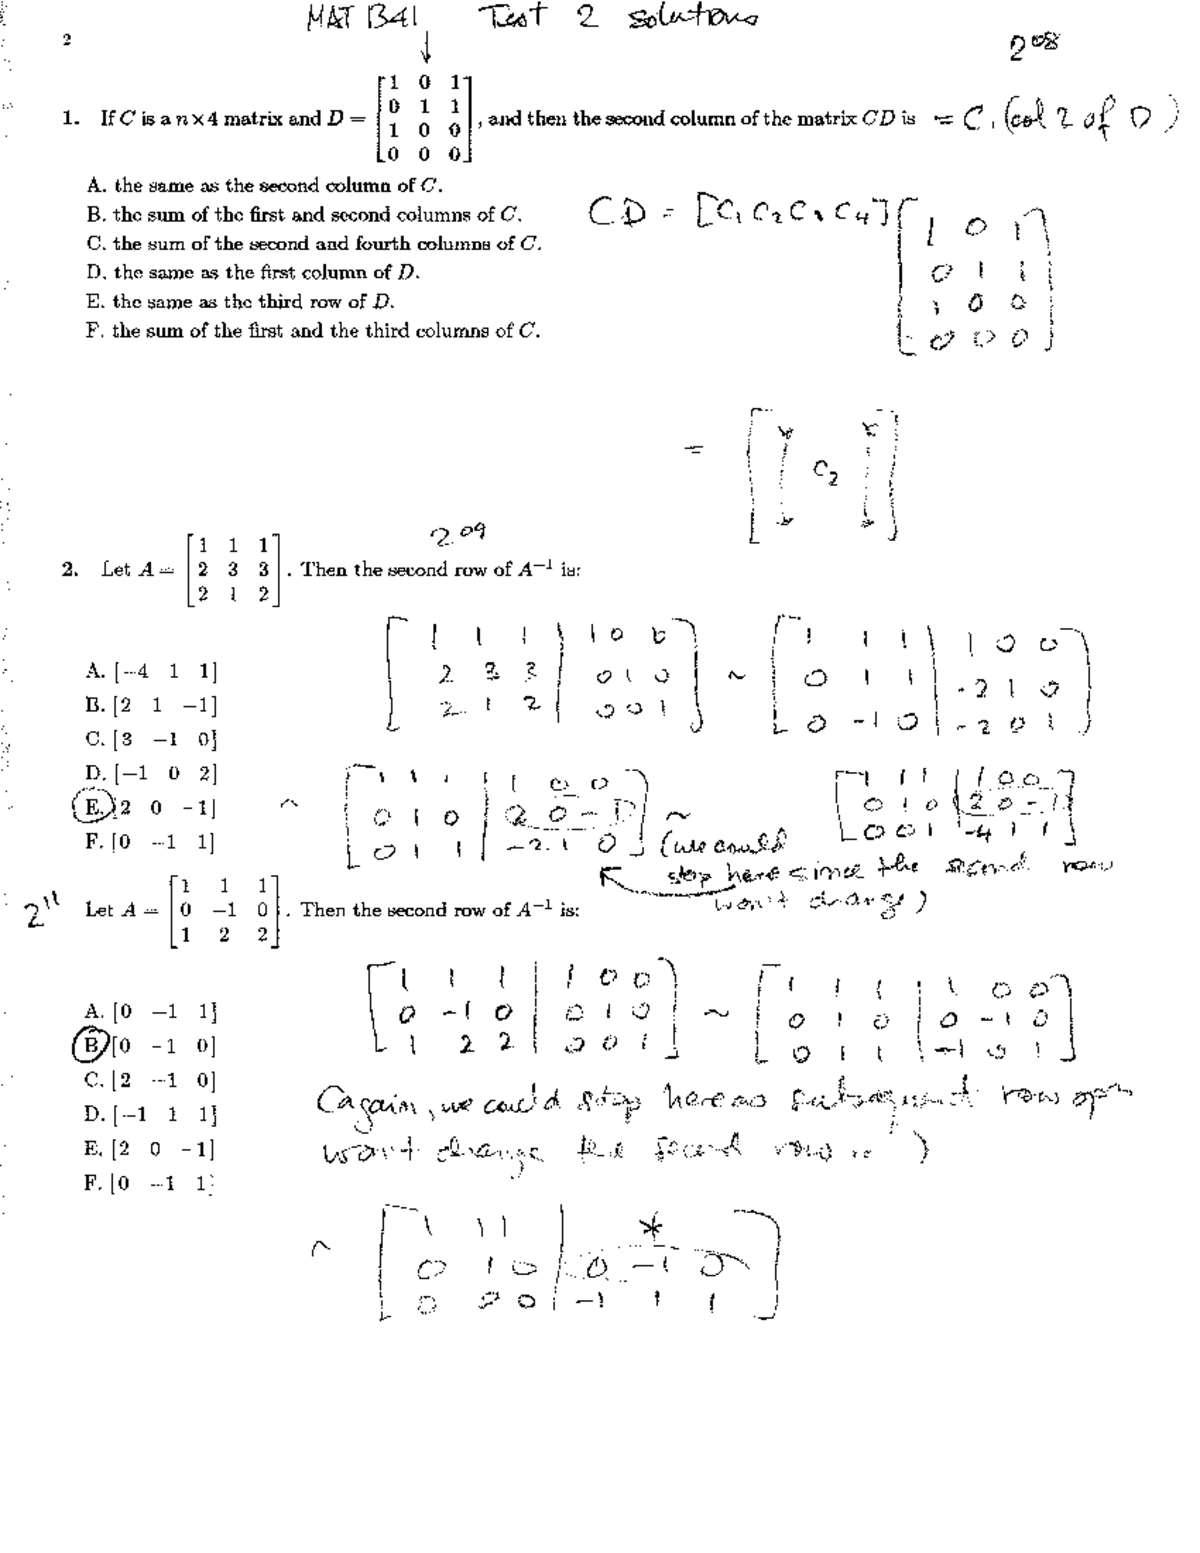 MAT 1341 Test 2 solutions
2
2 08
1. If C is a n×4 matrix and D = [1 0 1; 0 1 1; 1 0 0; 0 0 0], and then the second column of the matrix CD is = C. (col 2 of D)
A. the same as the second column of C.
B. the sum of the first and second columns of C.
C. the sum of the second and fourth columns of C.
D. the same as the first column of D.
E. the same as the third row of D.
F. the sum of the first and the third columns of C.
CD = [C1 C2 C3 C4] [1 0 1; 0 1 1; 1 0 0; 0 0 0]
= [ C2 ]
2 09
2. Let A = [1 1 1; 2 3 3; 2 1 2]. Then the second row of A−1 is:
A. [−4 1 1]
B. [2 1 −1]
C. [3 −1 0]
D. [−1 0 2]
E. [2 0 −1]
F. [0 −1 1]
[1 1 1 | 1 0 0; 2 3 3 | 0 1 0; 2 1 2 | 0 0 1] ~ [1 1 1 | 1 0 0; 0 1 1 | -2 1 0; 0 -1 0 | -2 0 1]
~ [1 1 1 | 1 0 0; 0 1 0 | 2 0 -1; 0 1 1 | -2 1 0] ~ [1 1 1 | 1 0 0; 0 1 0 | 2 0 -1; 0 0 1 | -4 1 1]
(we could
stop here since the second row
won't change)
2 11
Let A = [1 1 1; 0 −1 0; 1 2 2]. Then the second row of A−1 is:
A. [0 −1 1]
B. [0 −1 0]
C. [2 −1 0]
D. [−1 1 1]
E. [2 0 −1]
F. [0 −1 1]
[1 1 1 | 1 0 0; 0 -1 0 | 0 1 0; 1 2 2 | 0 0 1] ~ [1 1 1 | 1 0 0; 0 1 0 | 0 -1 0; 0 1 1 | -1 0 1]
(again, we could stop here as subsequent row opn
won't change the second row .. )
~ [1 1 1 | *; 0 1 0 | 0 -1 0; 0 0 0 | -1 1 1]